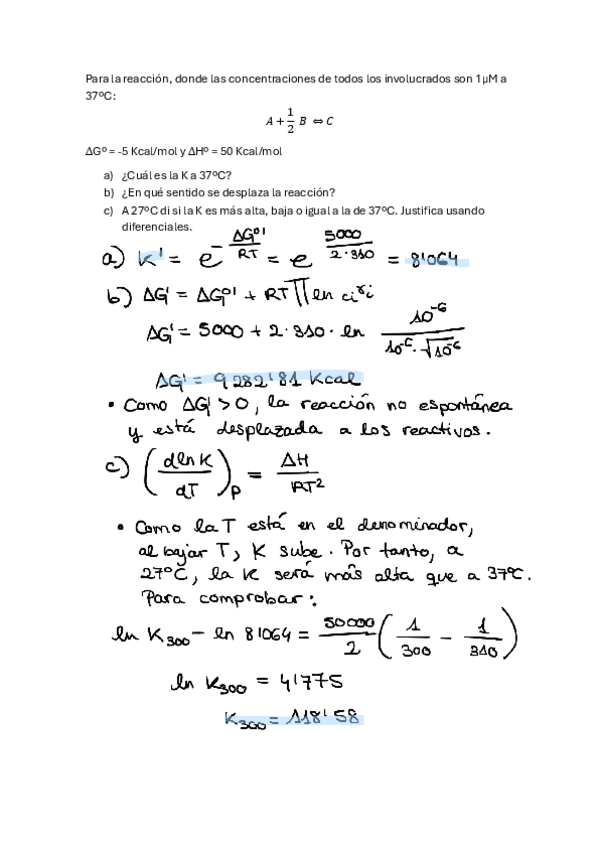 Para la reacción, donde las concentraciones de todos los involucrados son 1µM a
37ºC:
A + 1/2 B ⇔ C
ΔGº = -5 Kcal/mol y ΔHº = 50 Kcal/mol
a) ¿Cuál es la K a 37ºC?
b) ¿En qué sentido se desplaza la reacción?
c) A 27ºC di si la K es más alta, baja o igual a la de 37ºC. Justifica usando
diferenciales.
a) K' = e^(-ΔGº'/RT) = e^(5000/(2·310)) = 8'064
b) ΔG' = ΔGº' + RT∏ ln ci^γi
ΔG' = 5000 + 2·310·ln (10^-6/(10^-6·√10^-6))
ΔG' = 9282'81 Kcal
• Como ΔG' > 0, la reacción no espontánea
y está desplazada a los reactivos.
c) (dlnK/dT)p = ΔH/RT²
• Como la T está en el denominador,
al bajar T, K sube. Por tanto, a
27ºC, la K será más alta que a 37ºC.
Para comprobar:
ln K300 - ln 8'064 = 50000/2 (1/300 - 1/310)
ln K300 = 4'775
K300 = 118'58